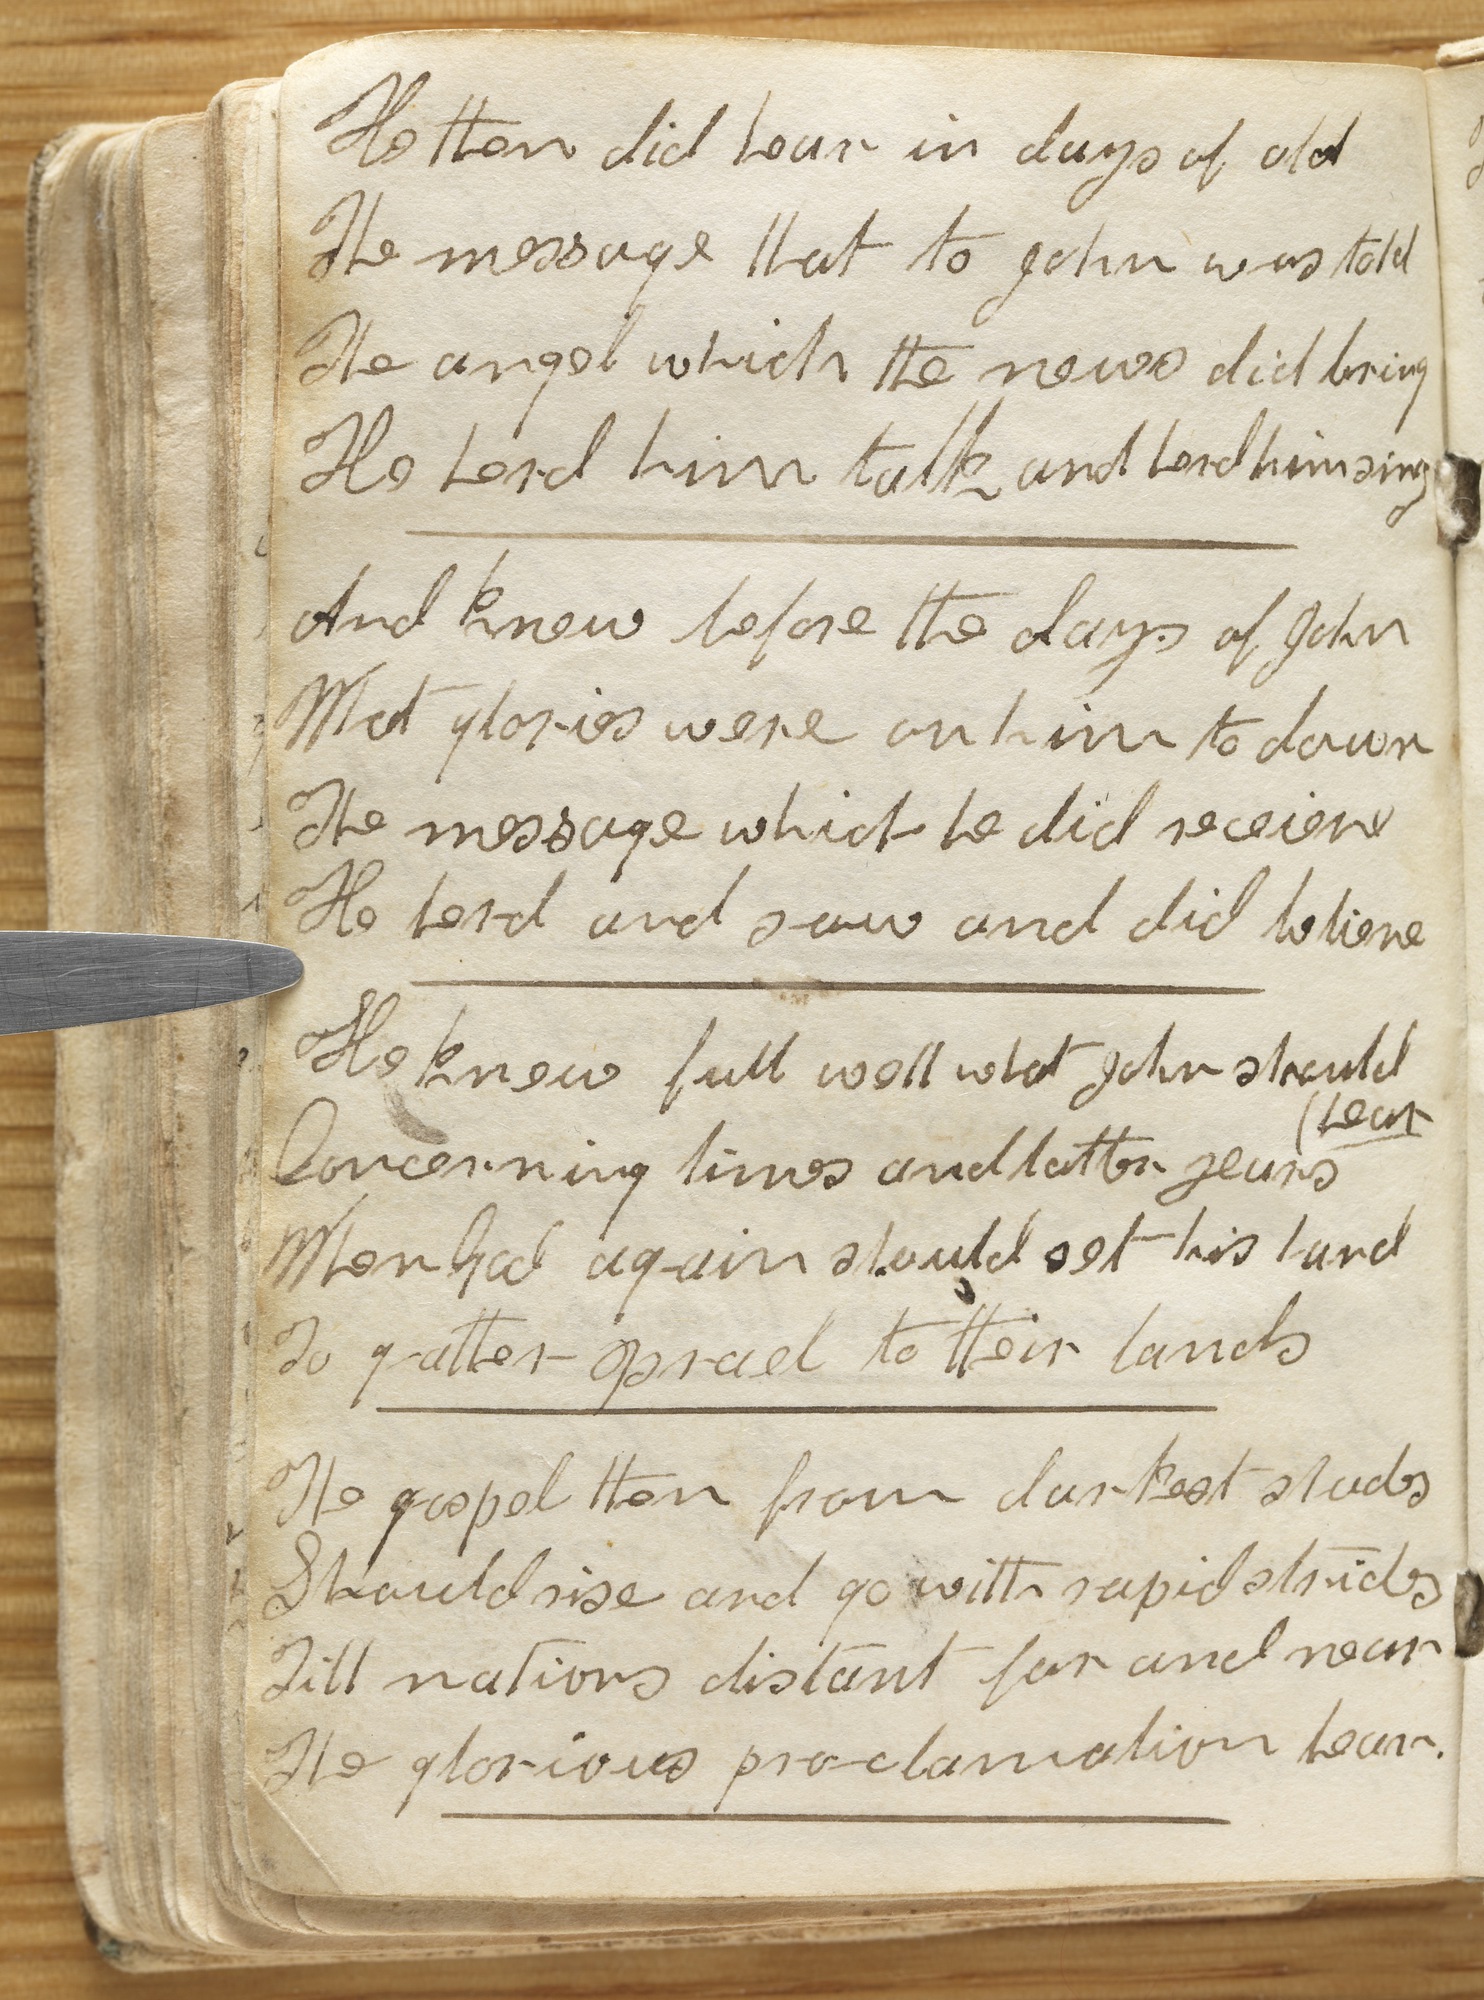 He then did hear in days of old
The message that to John was told
The angel which the news did bring
He herd him talk and herd him sing
And knew before the days of John
What glories were on him to dawn
The message which he did receieve
He herd and saw and did believe
He knew full well what John should
(hear
Concerning times and latter years
When God again should set his hand
To gather Israel to their lands
The gospel then from darkest shades
Should rise and go with rapid strides
Till nations distant far and near
The glorious proclamation hear.